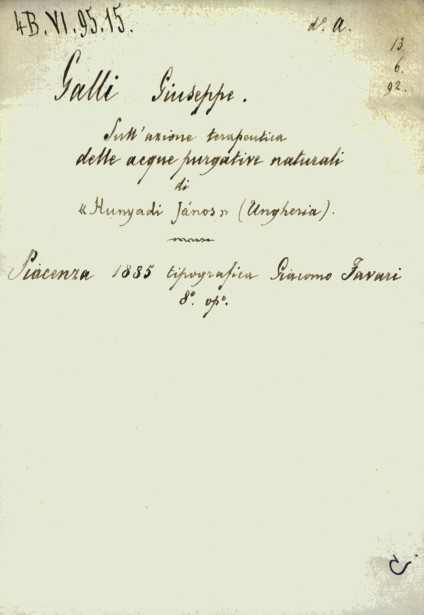 4B.VI.95.15.
d.º a.
13.
6.
92.
Galli Giuseppe.
Sull'azione terapeutica
delle acque purgative naturali
di
«Hunyadi János» (Ungheria).
Piacenza 1885 tipografica Giacomo Favari
8º. opº.